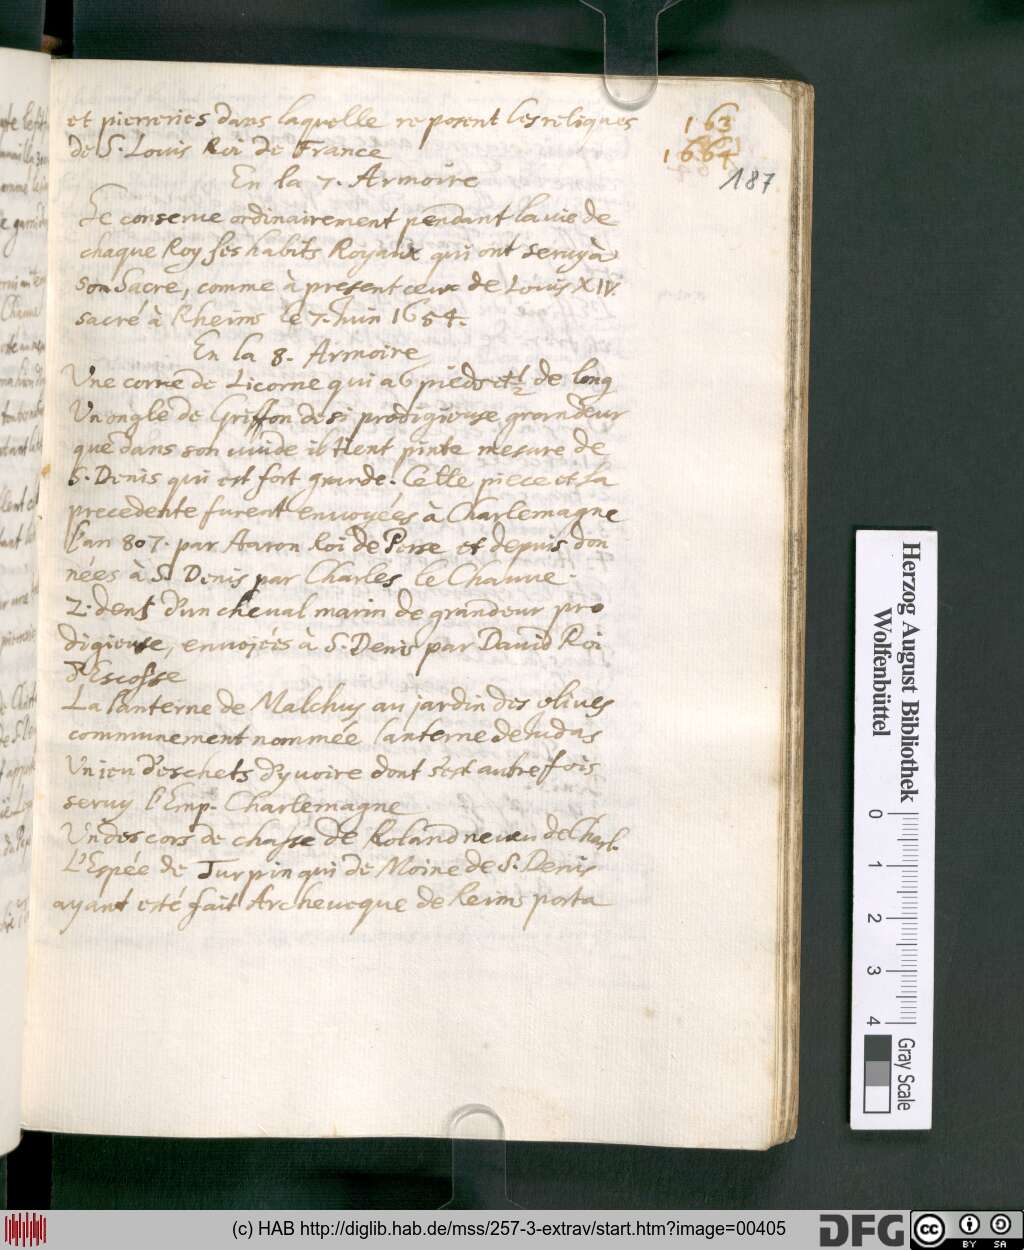 et pierreries dans laquelle reposent les reliques
de S. Louis Roi de France
163
1664
187
En la 7. Armoire
Se conserue ordinairement pendant la vie de
chaque Roy ses habits Royaux qui ont seruy à
son Sacre, comme à present ceux de Louis XIV.
sacré à Rheims le 7. Juin 1654.
En la 8. Armoire
Une corne de Licorne qui a 6 pieds et ½ de long
Un ongle de Griffon de si prodigieuse grandeur
que dans son vuide il tient pinte mesure de
S. Denis qui est fort grande. Cette piece et la
precedente furent envoyées à Charlemagne
l'an 807. par Aaron Roi de Perse et depuis don
nées à S. Denis par Charles le Chauve.
2. dents d'un cheval marin de grandeur pro
digieuse, envojées à S. Denis par David Roi
d'Escosse
La lanterne de Malchus au jardin des olives
communement nommée lanterne de Judas
Un jeu d'eschets d'yvoire dont s'est autrefois
seruy l'Emp. Charlemagne
Un des cors de chasse de Roland neveu de Charl.
L'Espée de Turpin qui de Moine de S. Denis
ayant esté fait Archeveque de Reims porta
Herzog August Bibliothek
Wolfenbüttel
0 1 2 3 4
Gray Scale
(c) HAB http://diglib.hab.de/mss/257-3-extrav/start.htm?image=00405
DFG
cc BY SA